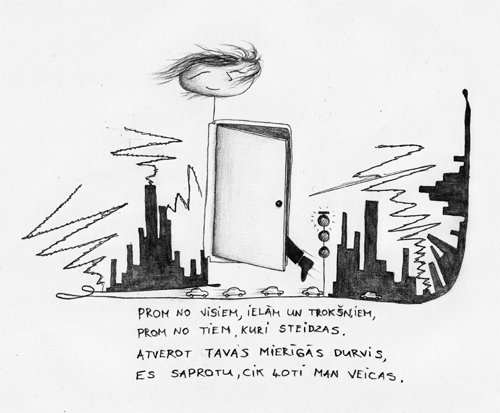 PROM NO VISIEM, IELĀM UN TROKŠŅIEM,
PROM NO TIEM, KURI STEIDZAS.
ATVEROT TAVAS MIERĪGĀS DURVIS,
ES SAPROTU, CIK ĻOTI MAN VEICAS.